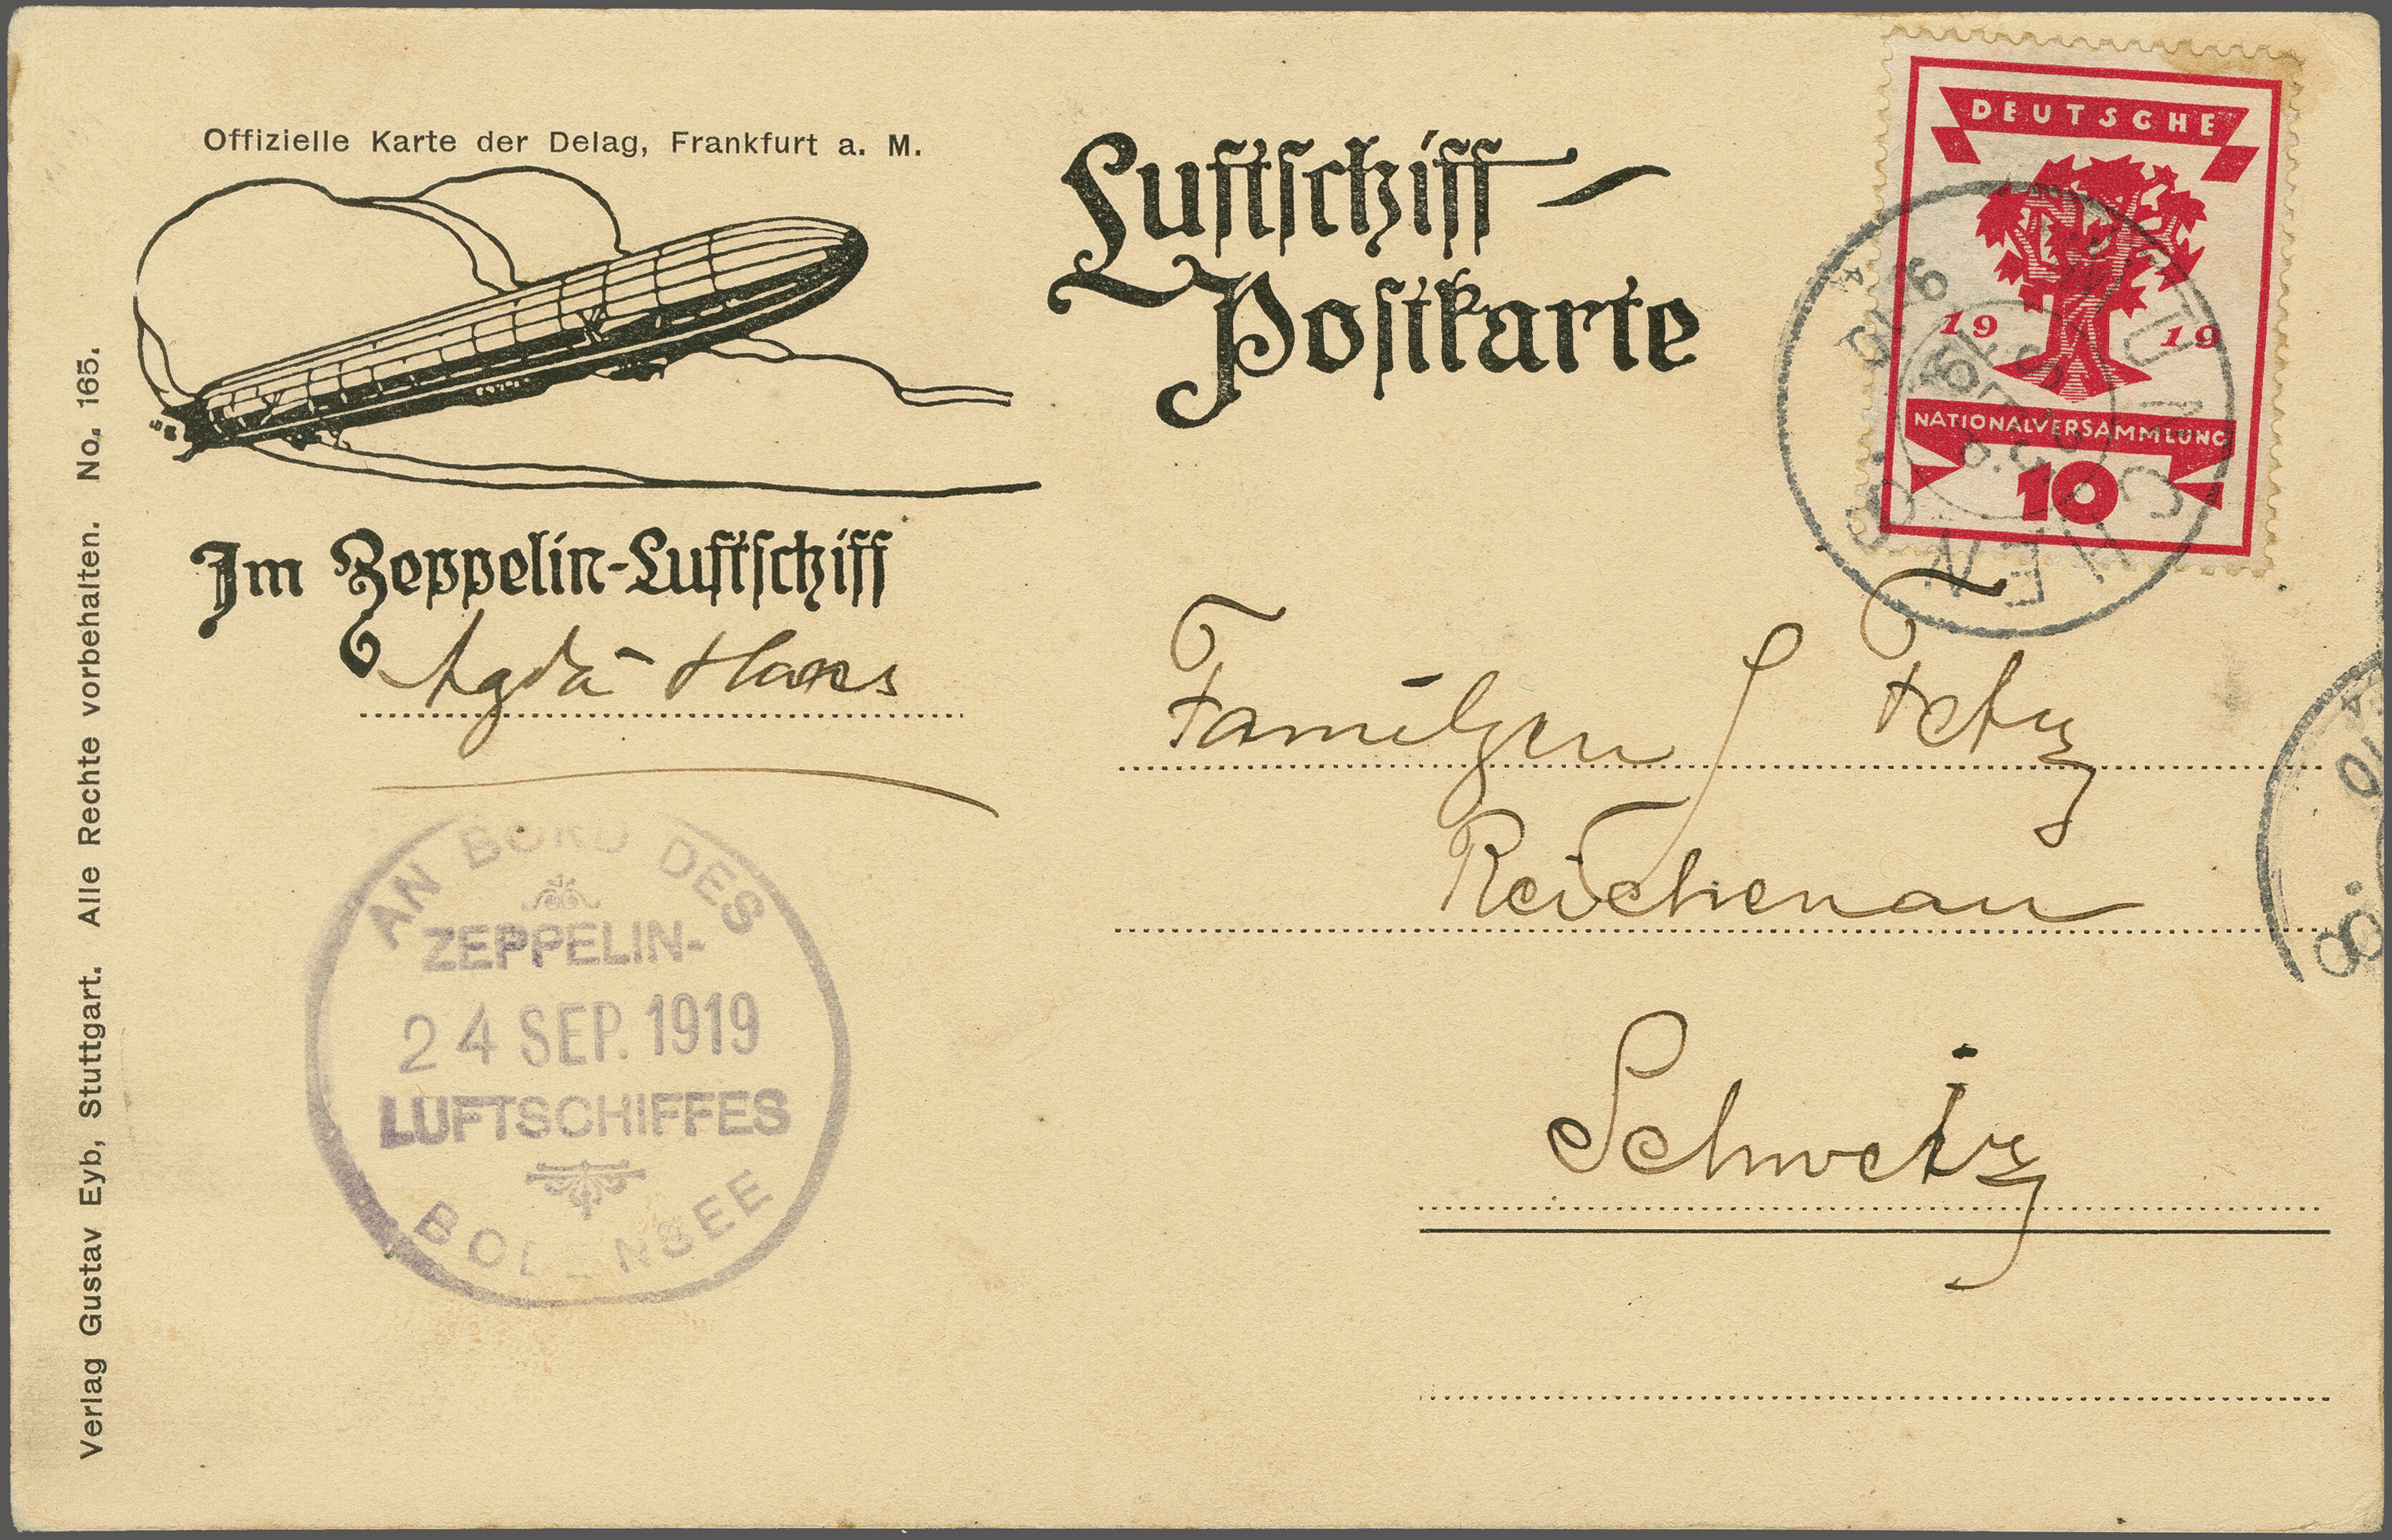 Offizielle Karte der Delag, Frankfurt a. M.
Luftschiff-
Postkarte
DEUTSCHE
19 19
NATIONALVERSAMMLUNG
10
MÜNCHEN
Im Zeppelin-Luftschiff
Agda Hans
Reichenau
Schweiz
AN BORD DES
ZEPPELIN-
24 SEP. 1919
LUFTSCHIFFES
BODENSEE
Verlag Gustav Eyb, Stuttgart. Alle Rechte vorbehalten. No. 165.